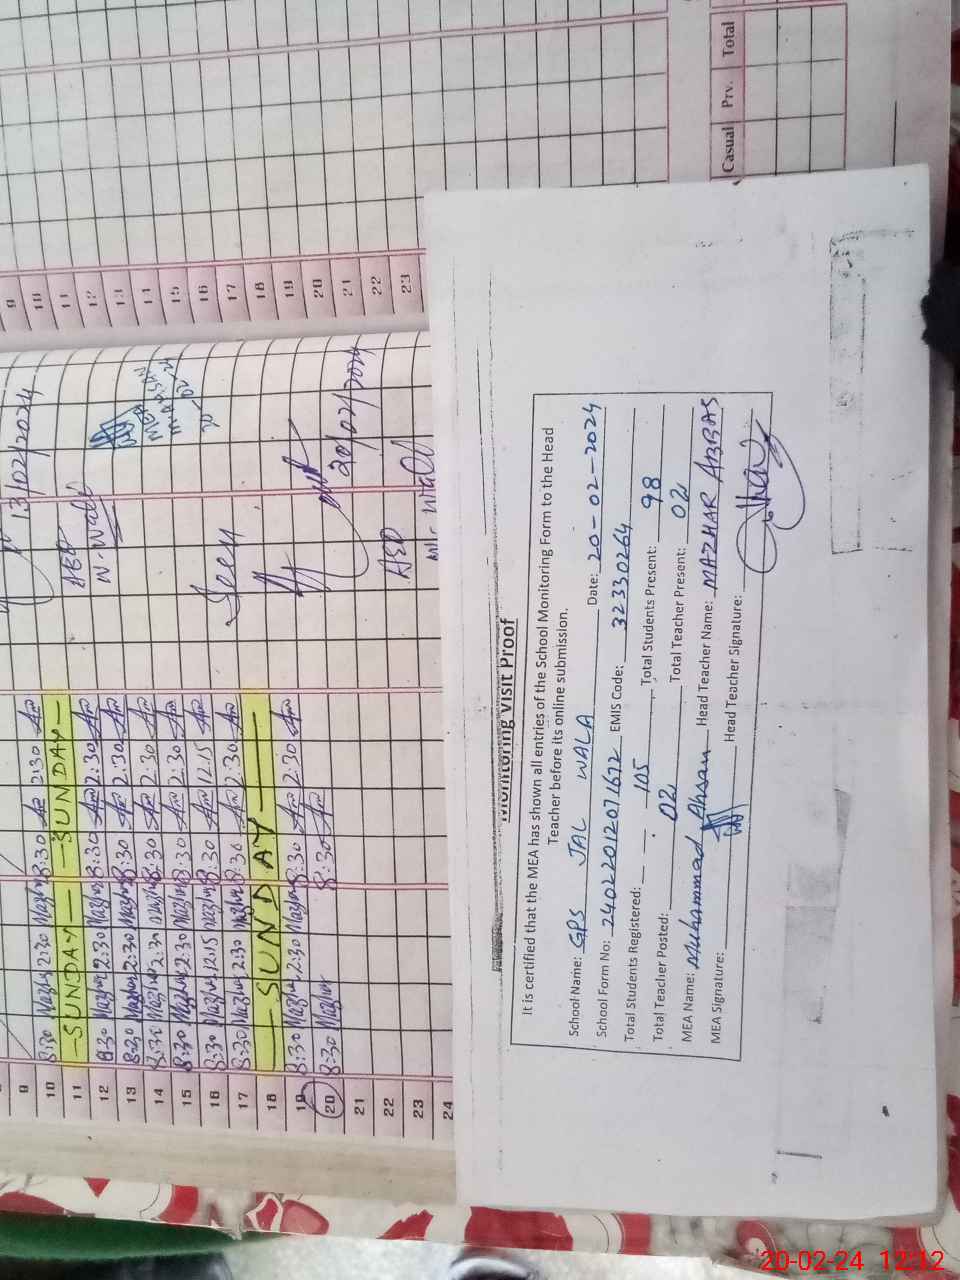 Casual Prv. Total
9
10
11
12
13
14
15
16
17
18
19
20
21
22
23
13/02/2024
AEO
20/02/2024
AEO
9
10 8:30 Mazhar 2:30 Mazhar 8:30 2:30
11 —SUNDAY— —SUNDAY—
12 8:30 Mazhar 2:30 Mazhar 8:30 2:30
13 8:30 Mazhar 2:30 Mazhar 8:30 2:30
14 8:30 Mazhar 2:30 Mazhar 8:30 2:30
15 8:30 Mazhar 2:30 Mazhar 8:30 2:30
16 8:30 Mazhar 12:15 Mazhar 8:30 12:15
17 8:30 Mazhar 2:30 Mazhar 8:30 2:30
18 — SUNDAY —
19 8:30 Mazhar 2:30 Mazhar 8:30 2:30
20 8:30 Mazhar 8:30
21
22
23
24
Monitoring Visit Proof
It is certified that the MEA has shown all entries of the School Monitoring Form to the Head
Teacher before its online submission.
School Name: GPS JAL WALA Date: 20-02-2024
School Form No: 24022012071672 EMIS Code: 32330264
Total Students Registered: 105 Total Students Present: 98
Total Teacher Posted: 02 Total Teacher Present: 02
MEA Name: Muhammad Ahsan Head Teacher Name: MAZHAR ABBAS
MEA Signature: Head Teacher Signature:
20-02-24 12:12